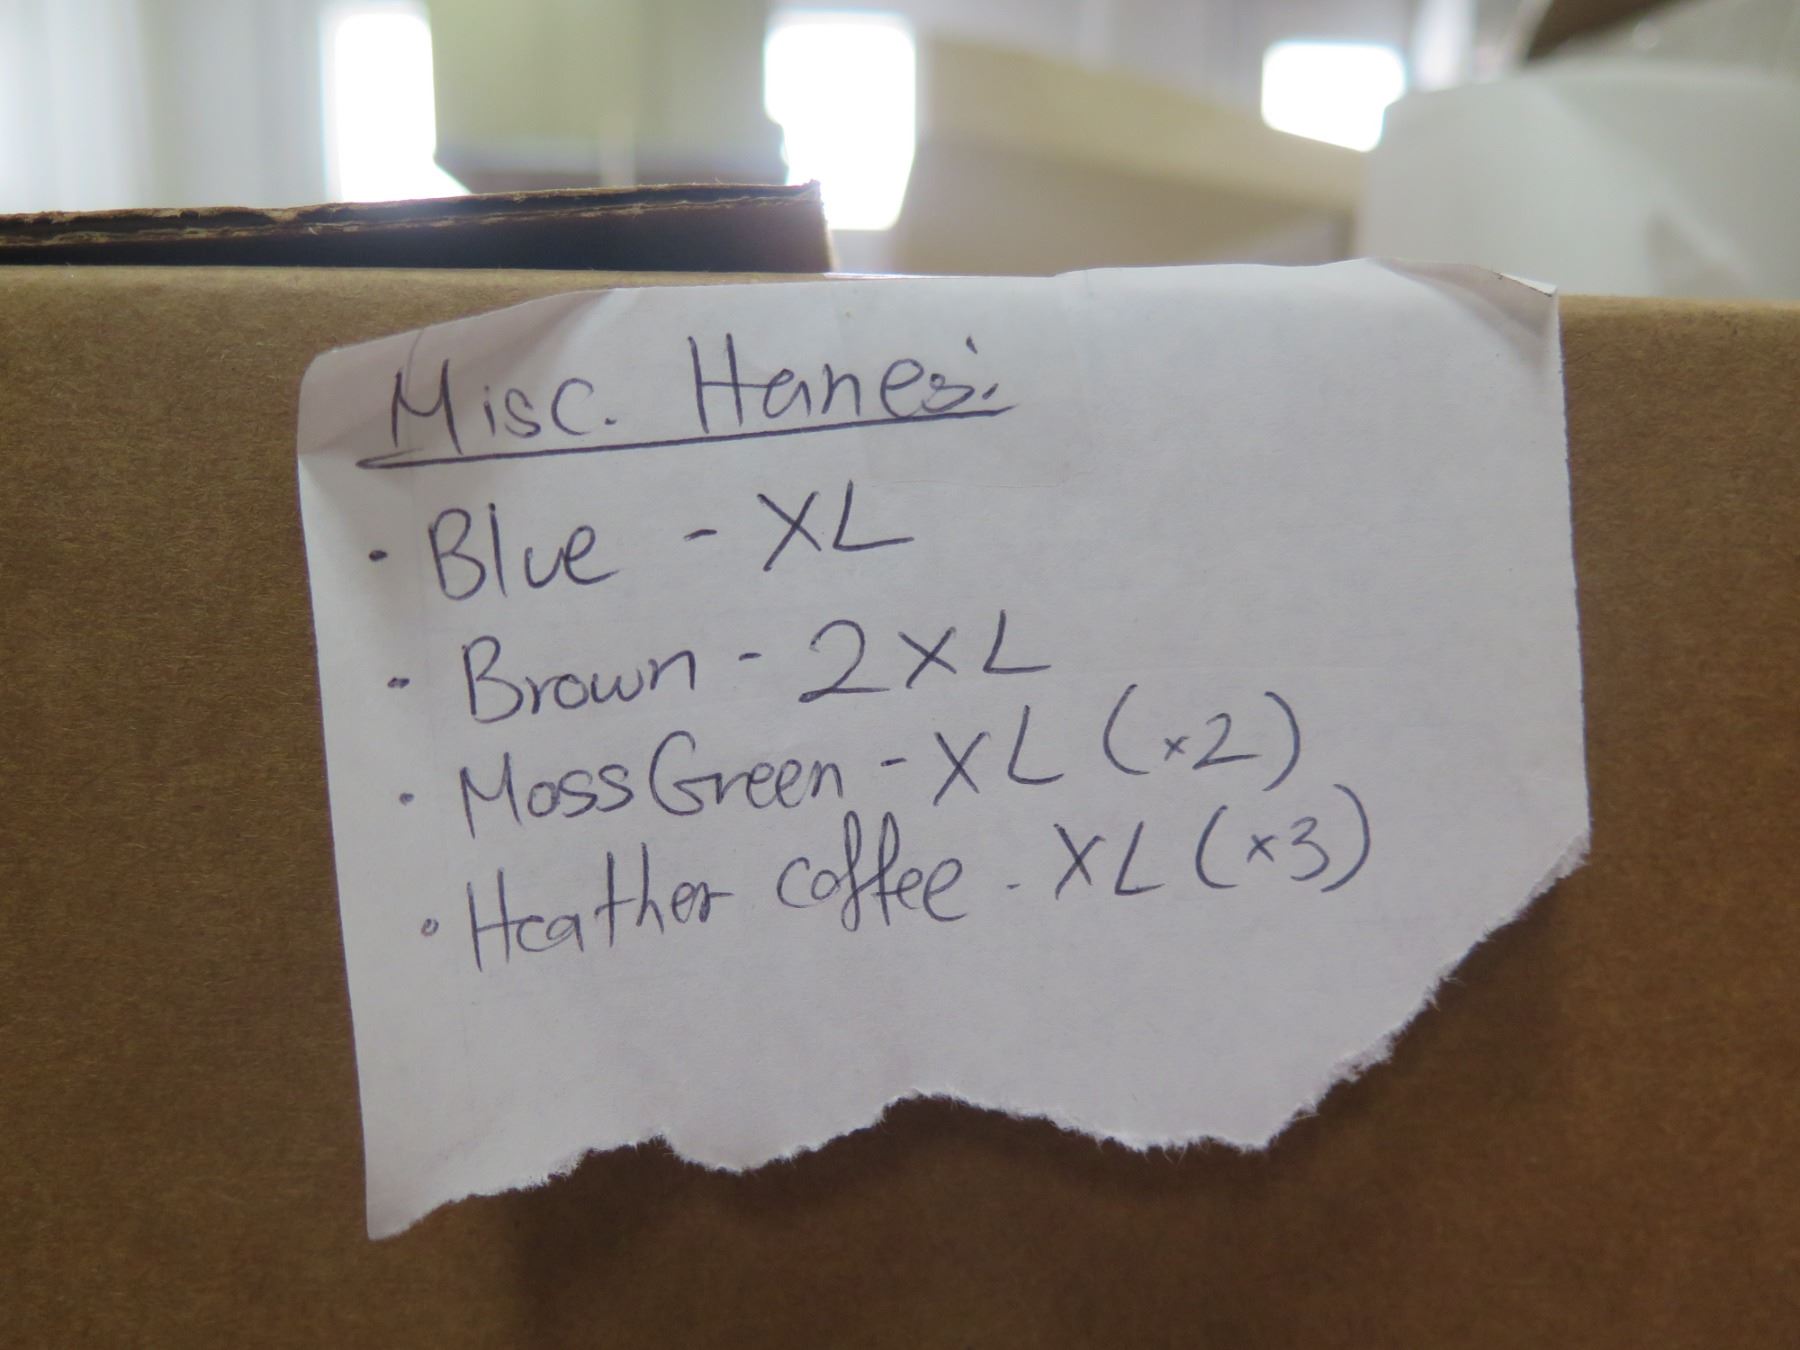 Misc. Hanes:
· Blue - XL
· Brown - 2XL
· Moss Green - XL (x2)
· Heather coffee - XL (x3)